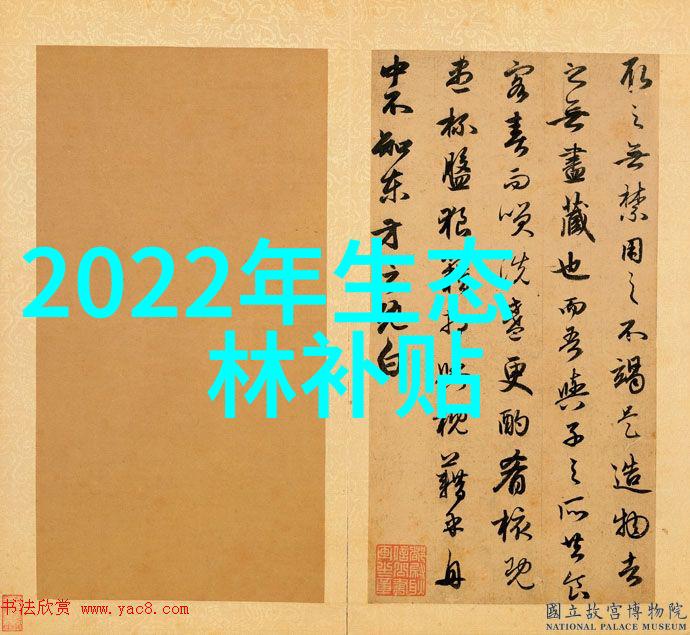 取之無禁用之不竭是造物者
之無盡藏也而吾與子之所共食
客喜而笑洗盞更酌肴核既
盡杯盤狼籍相與枕藉乎舟
中不知東方之既白
2022年生态
林补贴
书法欣赏 www.yac8.com
國立故宮博物院
NATIONAL PALACE MUSEUM